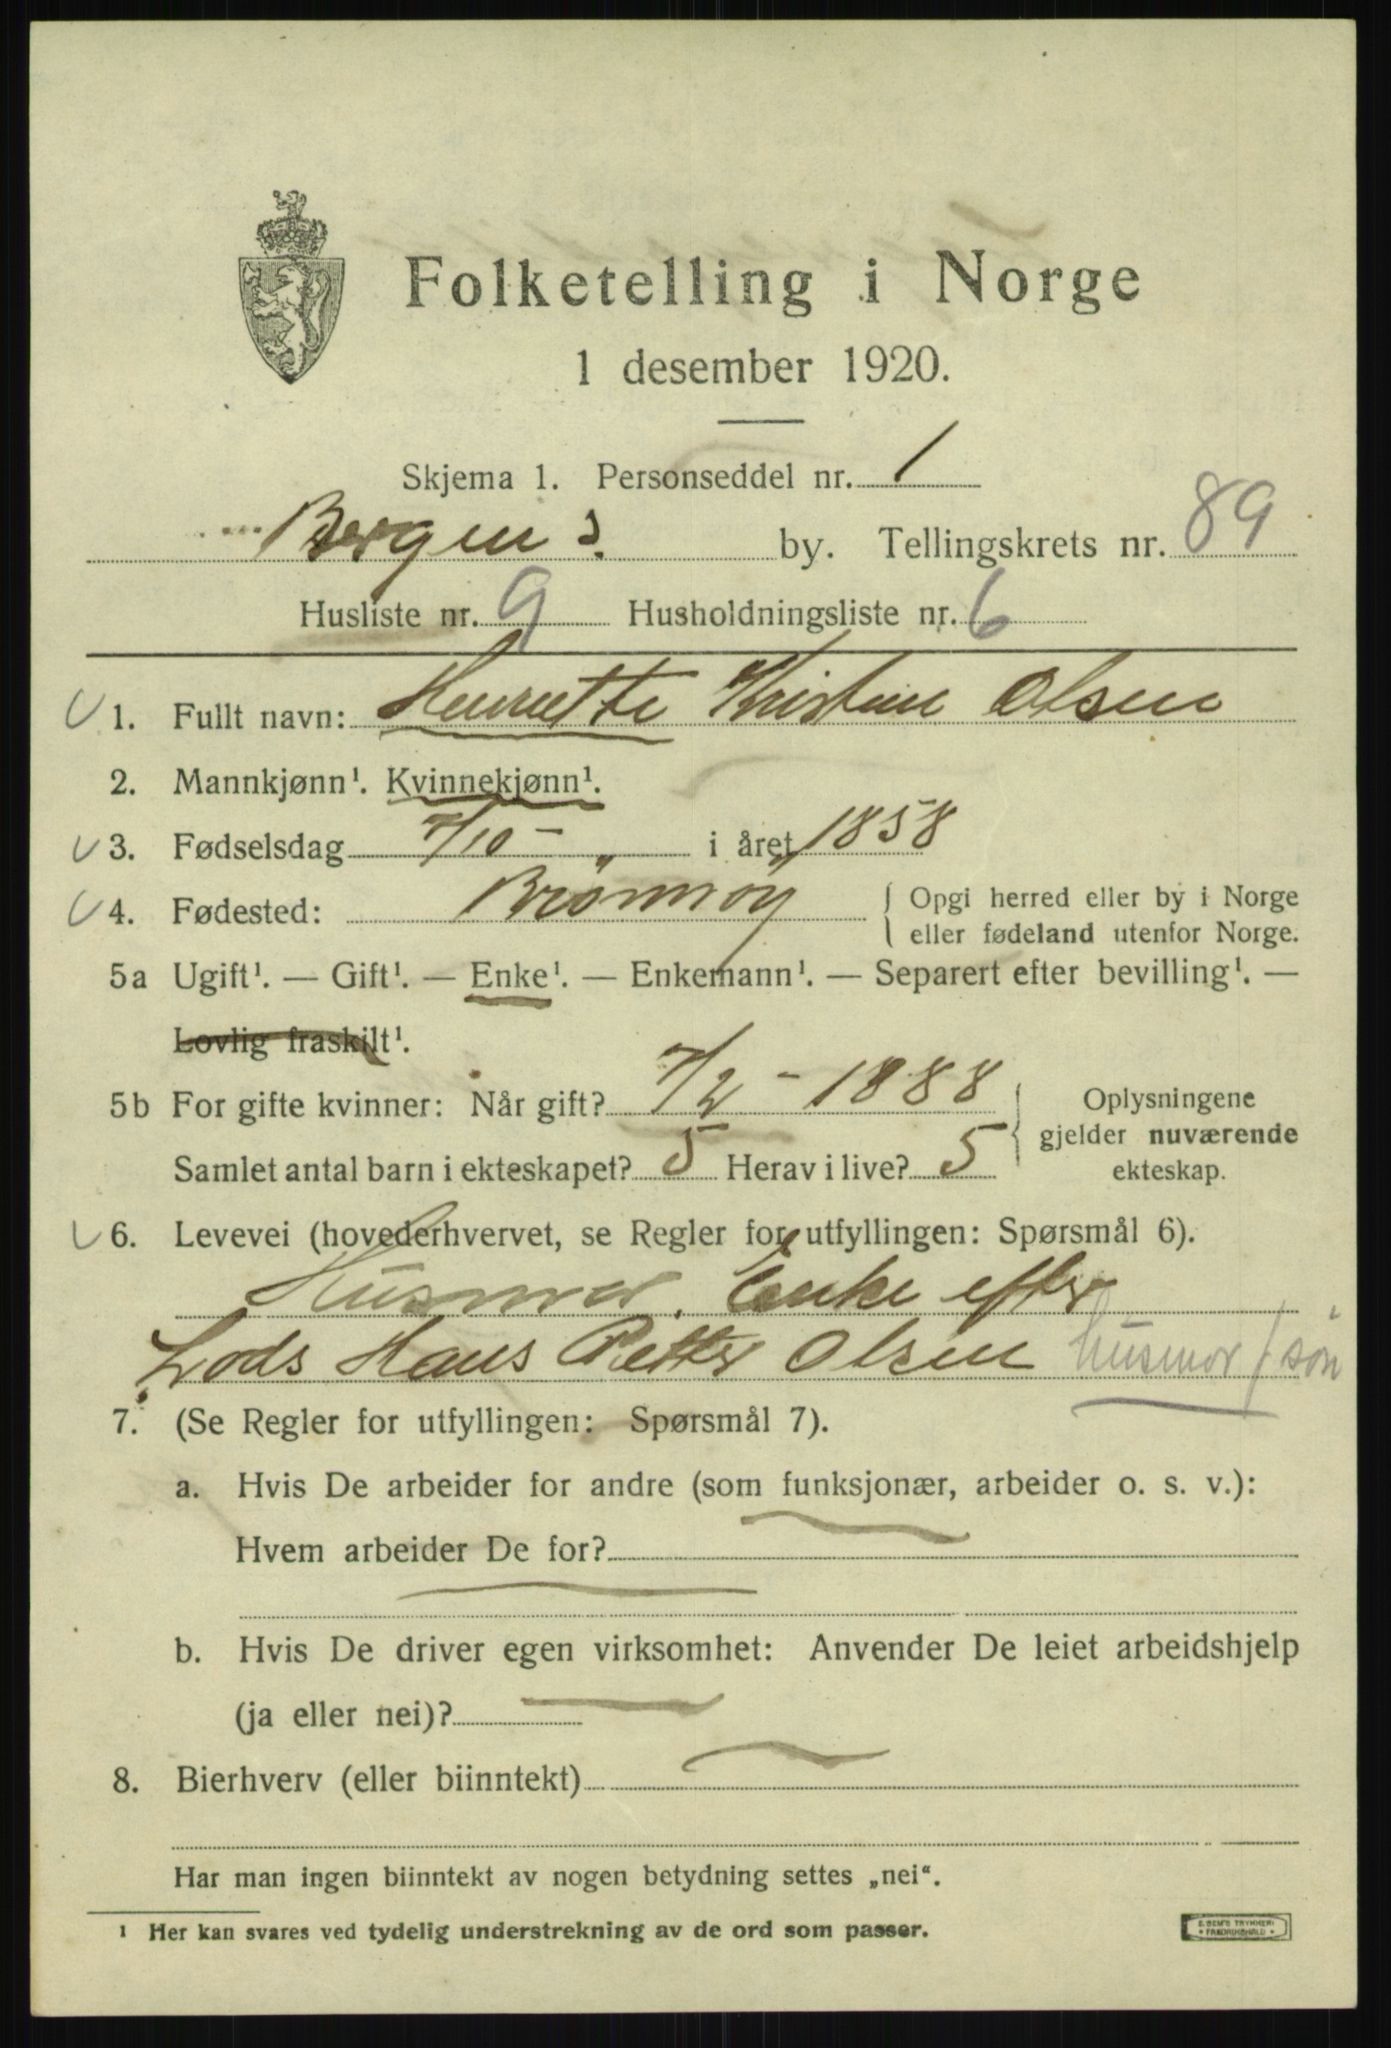 Folketelling i Norge
1 desember 1920.
Skjema 1. Personseddel nr. 1
Bergens by. Tellingskrets nr. 89
Husliste nr. 9 Husholdningsliste nr. 6
1. Fullt navn: Henriette Kristine Olsen
2. Mannkjønn¹. Kvinnekjønn¹.
3. Fødselsdag 7/10 - i året 1858
4. Fødested: Brønnøy { Opgi herred eller by i Norge
eller fødeland utenfor Norge.
5a Ugift¹. — Gift¹. — Enke¹. — Enkemann¹. — Separert efter bevilling¹. —
Lovlig fraskilt¹.
5b For gifte kvinner: Når gift? 7/2 - 1888
Samlet antal barn i ekteskapet? 5 Herav i live? 5
Oplysningene
gjelder nuværende
ekteskap.
6. Levevei (hovederhvervet, se Regler for utfyllingen: Spørsmål 6).
Husmor. Enke efter
Lods Hans Petter Olsen husmor / søn
7. (Se Regler for utfyllingen: Spørsmål 7).
a. Hvis De arbeider for andre (som funksjonær, arbeider o. s. v.):
Hvem arbeider De for?
b. Hvis De driver egen virksomhet: Anvender De leiet arbeidshjelp
(ja eller nei)?
8. Bierhverv (eller biinntekt)
Har man ingen biinntekt av nogen betydning settes „nei“.
¹ Her kan svares ved tydelig understrekning av de ord som passer.
E. SEM'S TRYKKERI
• FREDRIKSHALD •